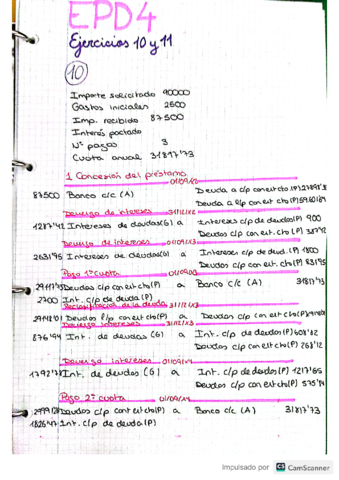 EPD4
Ejercicios 10 y 11
10
Importe solicitado 90000
Gastos iniciales 2500
Imp. recibido 87500
Interés pactado
Nº pagos 3
Cuota anual 31817'73
1 Concesión del préstamo
01/09/X2
87500 Banco c/c (A)
Deuda a c/p con ent cto (P)
Deuda a l/p con ent cto (P)
Devengo de intereses 31/12/X2
Intereses de deudas (G) a Intereses c/p de deudas (P) 900
Deudas c/p con ent cto (P)
Devengo de intereses 01/09/X3
Intereses de deudas (G) a Intereses c/p de deud. (P) 1800
Deudas c/p con ent. cto (P)
Pago 1ª cuota 01/09/X3
Deudas c/p con ent cto (P) a Banco c/c (A) 31817'73
2700 Int. c/p de deuda (P)
Reclasificación de la deuda 31/12/X3
Deudas l/p con ent cto (P) a Deudas c/p con ent cto (P)
Devengo intereses 31/12/X3
Int. de deudas (G) a Int. c/p de deudas (P)
Deudas c/p con ent cto (P)
Devengo intereses 01/09/X4
Int. de deudas (G) a Int. c/p de deudas (P)
Deudas c/p con ent cto (P)
Pago 2ª cuota 01/09/X4
Deudas c/p con ent cto (P) a Banco c/c (A) 31817'73
Int. c/p de deuda (P)
Impulsado por CS CamScanner